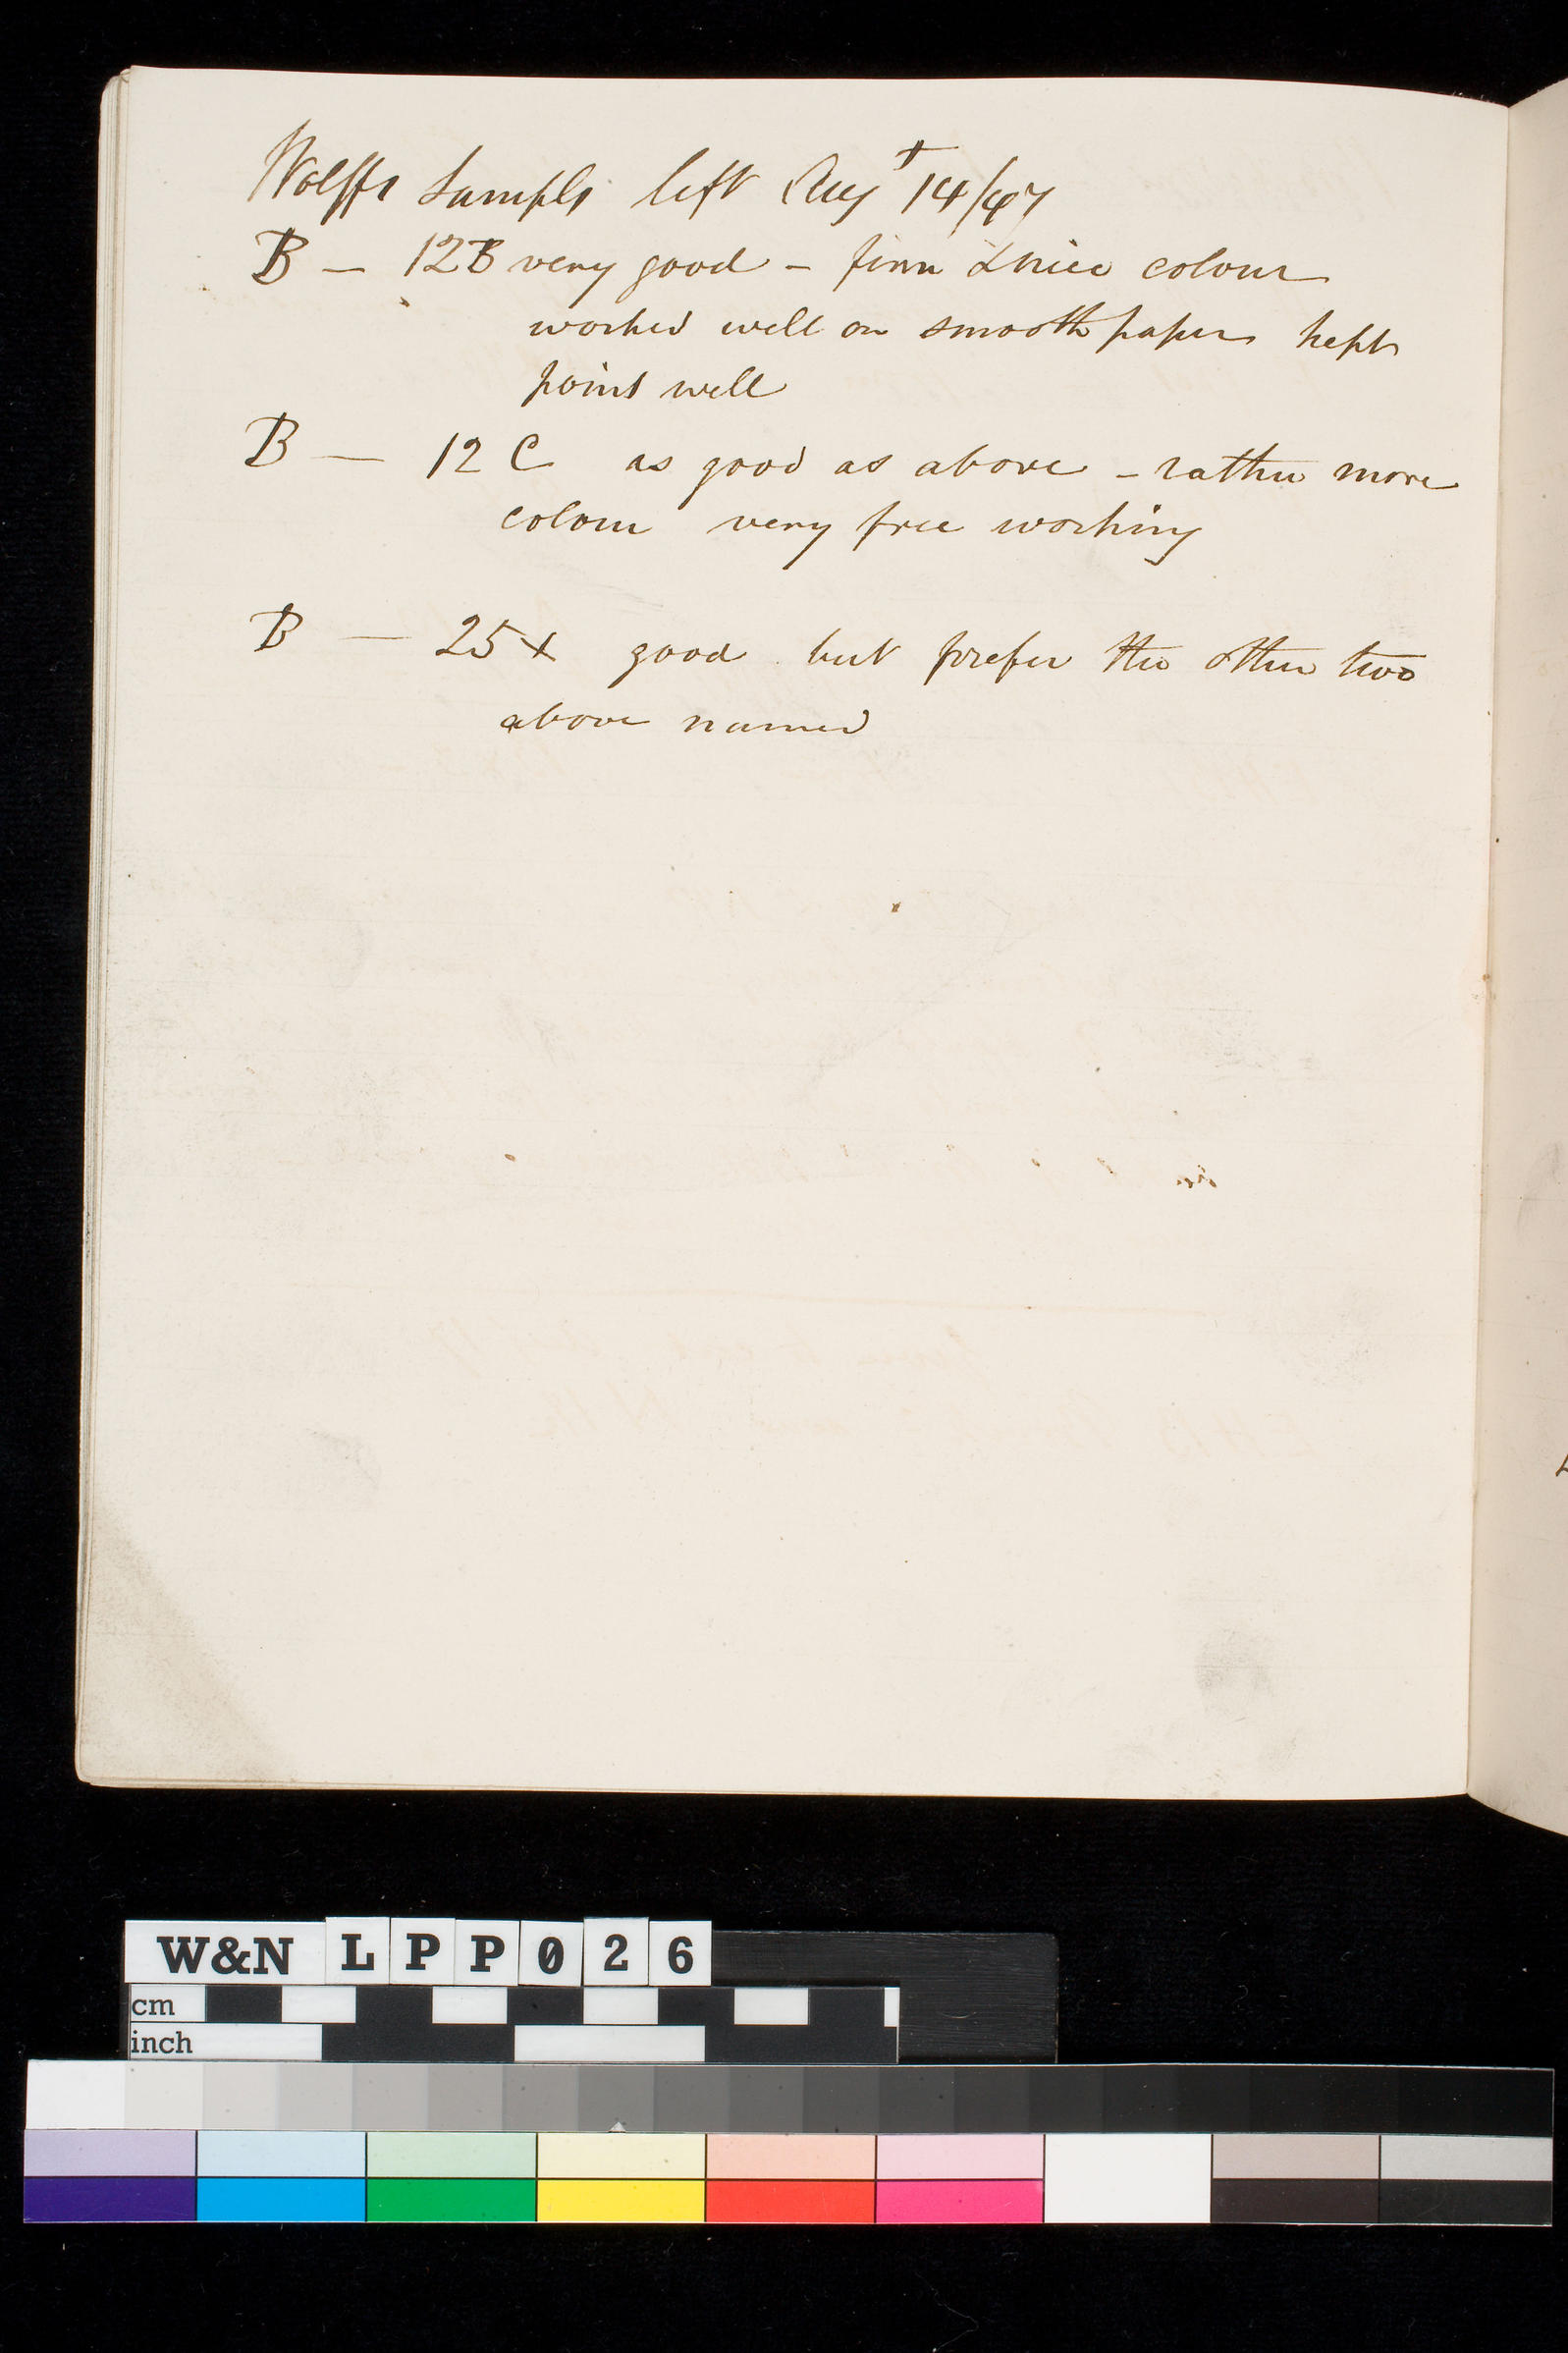 Wolffs Samples left Augt 14/47
B — 12B very good – firm & nice colour
worked well on smooth paper kept
point well
B — 12 C as good as above – rather more
colour very free working
B — 25 x good but prefer the other two
above named
W&N LPP026
cm
inch